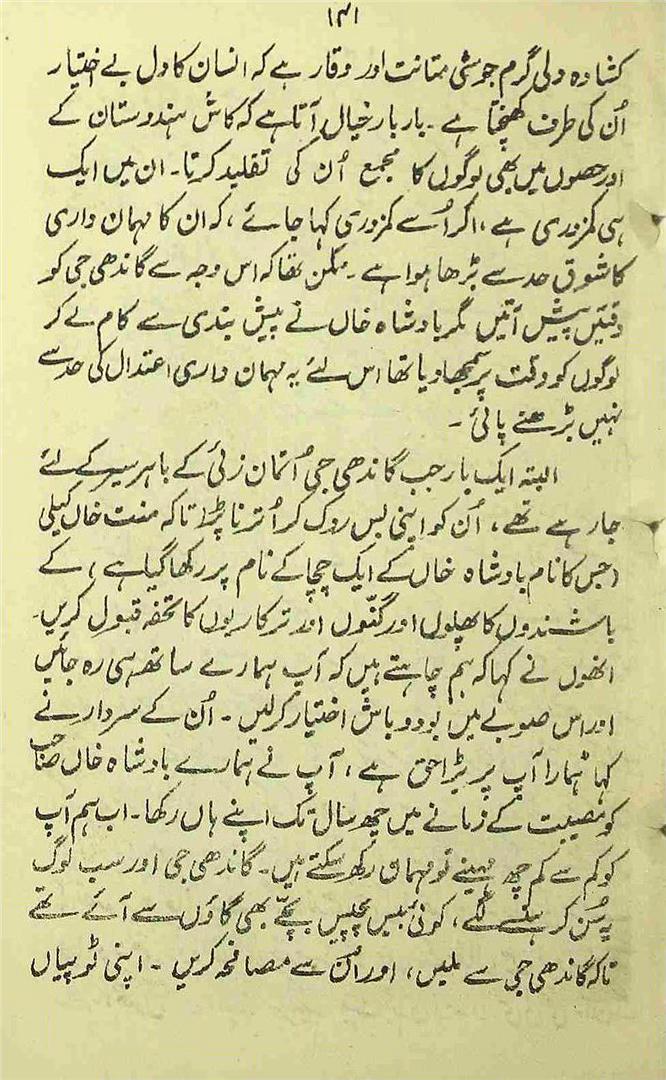 ۱۴۱
کشادہ دلی گرم جوشی متانت اور وقار ہے کہ انسان کا دل بے اختیار
اُن کی طرف کھنچتا ہے۔ بار بار خیال آتا ہے کہ کاش ہندوستان کے
اور حصوں میں بھی لوگوں کا مجمع اُن کی تقلید کرتا۔ ان میں ایک
ہی کمزوری ہے، اگر اُسے کمزوری کہا جائے، کہ ان کا مہمان داری
کا شوق حد سے بڑھا ہوا ہے۔ ممکن تھا کہ اس وجہ سے گاندھی جی کو
دقتیں پیش آتیں مگر بادشاہ خاں نے پیش بندی سے کام لے کر
لوگوں کو وقت پر سمجھا دیا تھا اس لئے یہ مہمان داری اعتدال کی حد سے
نہیں بڑھنے پائی۔
البتہ ایک بار جب گاندھی جی اُتمان زئی کے باہر سیر کے لئے
جا رہے تھے، اُن کو اپنی بس روک کر اُترنا پڑا تاکہ منت خاں کیلی
(جس کا نام بادشاہ خاں کے ایک چچا کے نام پر رکھا گیا ہے، کے
باشندوں کا پھلوں اور گنّوں اور ترکاریوں کا تحفہ قبول کریں۔
انھوں نے کہا کہ ہم چاہتے ہیں کہ آپ ہمارے ساتھ ہی رہ جائیں
اور اس صوبے میں بود و باش اختیار کرلیں۔ اُن کے سردار نے
کہا ہمارا آپ پر بڑا حق ہے، آپ نے ہمارے بادشاہ خاں صاحب
کو مصیبت کے زمانے میں چھ سال تک اپنے ہاں رکھا۔ اب ہم آپ
کو کم سے کم چھ مہینے تو مہمان رکھ سکتے ہیں۔ گاندھی جی اور سب لوگ
یہ سُن کر ہنسنے لگے، کوئی بیس پچیس بچّے بھی گاؤں سے آئے تھے
تاکہ گاندھی جی سے ملیں، اور اُن سے مصافحہ کریں۔ اپنی ٹوپیاں